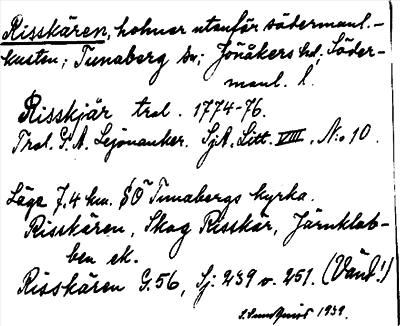 Risskären, holmar utanför södermanl.-
kusten; Tunaberg sn; Jönåkers hd, Söder-
manl. l.
Risskjär trol. 1774-76.
Trol. G.A. Lejonanker. SjA, Litt. VIII, N:o 10.
Läge 7,4 km. SO Tunabergs kyrka.
Risskären, Skog Risskär, Järnklub-
ben ek.
Risskären G.56, Sj: 239 o. 251. (Vänd!)
1939.